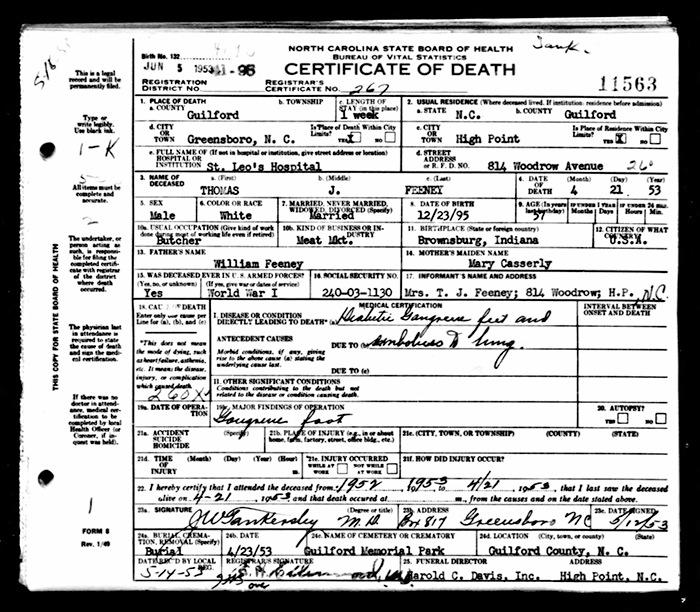 NORTH CAROLINA STATE BOARD OF HEALTH
BUREAU OF VITAL STATISTICS
CERTIFICATE OF DEATH
Tank.
5-18-51
Birth No. 132
JUN 5 1953
-96
11563
REGISTRATION DISTRICT NO.
REGISTRAR'S CERTIFICATE NO. 267
1. PLACE OF DEATH
a. COUNTY Guilford
b. TOWNSHIP
c. LENGTH OF STAY (in this place) 1 week
2. USUAL RESIDENCE (Where deceased lived. If institution: residence before admission)
a. STATE N.C.
b. COUNTY Guilford
d. CITY OR TOWN Greensboro, N. C.
Is Place of Death Within City Limits? YES X NO
c. CITY OR TOWN High Point
Is Place of Residence Within City Limits? YES X NO
e. FULL NAME OF (If not in hospital or institution, give street address or location) HOSPITAL OR INSTITUTION St. Leo's Hospital
d. STREET ADDRESS or R. F. D. NO. 814 Woodrow Avenue
3. NAME OF DECEASED
a. (First) THOMAS
b. (Middle) J.
c. (Last) FEENEY
4. DATE OF DEATH (Month) 4 (Day) 21 (Year) 53
5. SEX Male
6. COLOR OR RACE White
7. MARRIED, NEVER MARRIED, WIDOWED, DIVORCED (Specify) Married
8. DATE OF BIRTH 12/23/95
9. AGE (In years last birthday) 57
IF UNDER 1 YEAR Months Days
IF UNDER 24 HRS. Hours Min.
10a. USUAL OCCUPATION (Give kind of work done during most of working life, even if retired) Butcher
10b. KIND OF BUSINESS OR INDUSTRY Meat Mkt.
11. BIRTHPLACE (State or foreign country) Brownsburg, Indiana
12. CITIZEN OF WHAT COUNTRY? U.S.A.
13. FATHER'S NAME William Feeney
14. MOTHER'S MAIDEN NAME Mary Casserly
15. WAS DECEASED EVER IN U. S. ARMED FORCES? (Yes, no, or unknown) Yes
(If yes, give war or dates of service) World War I
16. SOCIAL SECURITY NO. 240-03-1130
17. INFORMANT'S NAME AND ADDRESS Mrs. T. J. Feeney; 814 Woodrow; H.P., N.C.
18. CAUSE OF DEATH
Enter only one cause per line for (a), (b), and (c)
MEDICAL CERTIFICATION
INTERVAL BETWEEN ONSET AND DEATH
I. DISEASE OR CONDITION DIRECTLY LEADING TO DEATH* (a) Diabetic Gangrene feet and
ANTECEDENT CAUSES
DUE TO (b) embolus to lung.
Morbid conditions, if any, giving rise to the above cause (a) stating the underlying cause last.
DUE TO (c)
*This does not mean the mode of dying, such as heart failure, asthenia, etc. It means the disease, injury, or complication which caused death.
260X
II. OTHER SIGNIFICANT CONDITIONS
Conditions contributing to the death but not related to the disease or condition causing death.
19a. DATE OF OPERATION
19b. MAJOR FINDINGS OF OPERATION Gangrene foot
20. AUTOPSY? YES NO
21a. ACCIDENT SUICIDE HOMICIDE (Specify)
21b. PLACE OF INJURY (e.g., in or about home, farm, factory, street, office bldg., etc.)
21c. (CITY, TOWN, OR TOWNSHIP) (COUNTY) (STATE)
21d. TIME OF INJURY (Month) (Day) (Year) (Hour) m.
21e. INJURY OCCURRED WHILE AT WORK NOT WHILE AT WORK
21f. HOW DID INJURY OCCUR?
22. I hereby certify that I attended the deceased from 1952 1953 to 4/21 1953, that I last saw the deceased
alive on 4-21, 1953 and that death occurred at m., from the causes and on the date stated above.
23a. SIGNATURE (Degree or title) JW Tankersley M.D.
23b. ADDRESS Box 817 Greensboro NC
23c. DATE SIGNED 5/12/53
24a. BURIAL, CREMATION, REMOVAL (Specify) Burial
24b. DATE 4/23/53
24c. NAME OF CEMETERY OR CREMATORY Guilford Memorial Park
24d. LOCATION (City, town, or county) (State) Guilford County, N. C.
DATE REC'D BY LOCAL REG. 5-14-53
REGISTRAR'S SIGNATURE
over
25. FUNERAL DIRECTOR ADDRESS Harold C. Davis, Inc. High Point, N.C.
This is a legal record and will be permanently filed.
Type or write legibly. Use black ink.
1-K
All items must be complete and accurate.
2
The undertaker, or person acting as such, is responsible for filing the completed certificate with registrar of the district where death occurred.
The physician last in attendance is required to state the cause of death and sign the medical certification.
If there was no doctor in attendance, medical certification to be completed by local Health Officer (or Coroner, if inquest was held).
1
FORM 8
Rev. 1/49
THIS COPY FOR STATE BOARD OF HEALTH